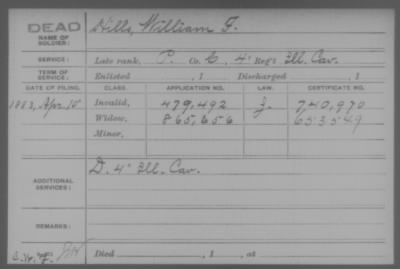 DEAD Hills, William F.
NAME OF SOLDIER:
SERVICE: Late rank, P. Co. C, 4" Reg't Ill. Cav.
TERM OF SERVICE: Enlisted , 1 Discharged , 1
DATE OF FILING. CLASS. APPLICATION NO. LAW. CERTIFICATE NO.
1883, Apr. 10 Invalid, 479,492 740,970
Widow, 865,656 653549
Minor,
ADDITIONAL SERVICES: D. 4" Ill. Cav.
REMARKS:
Died , 1 , at